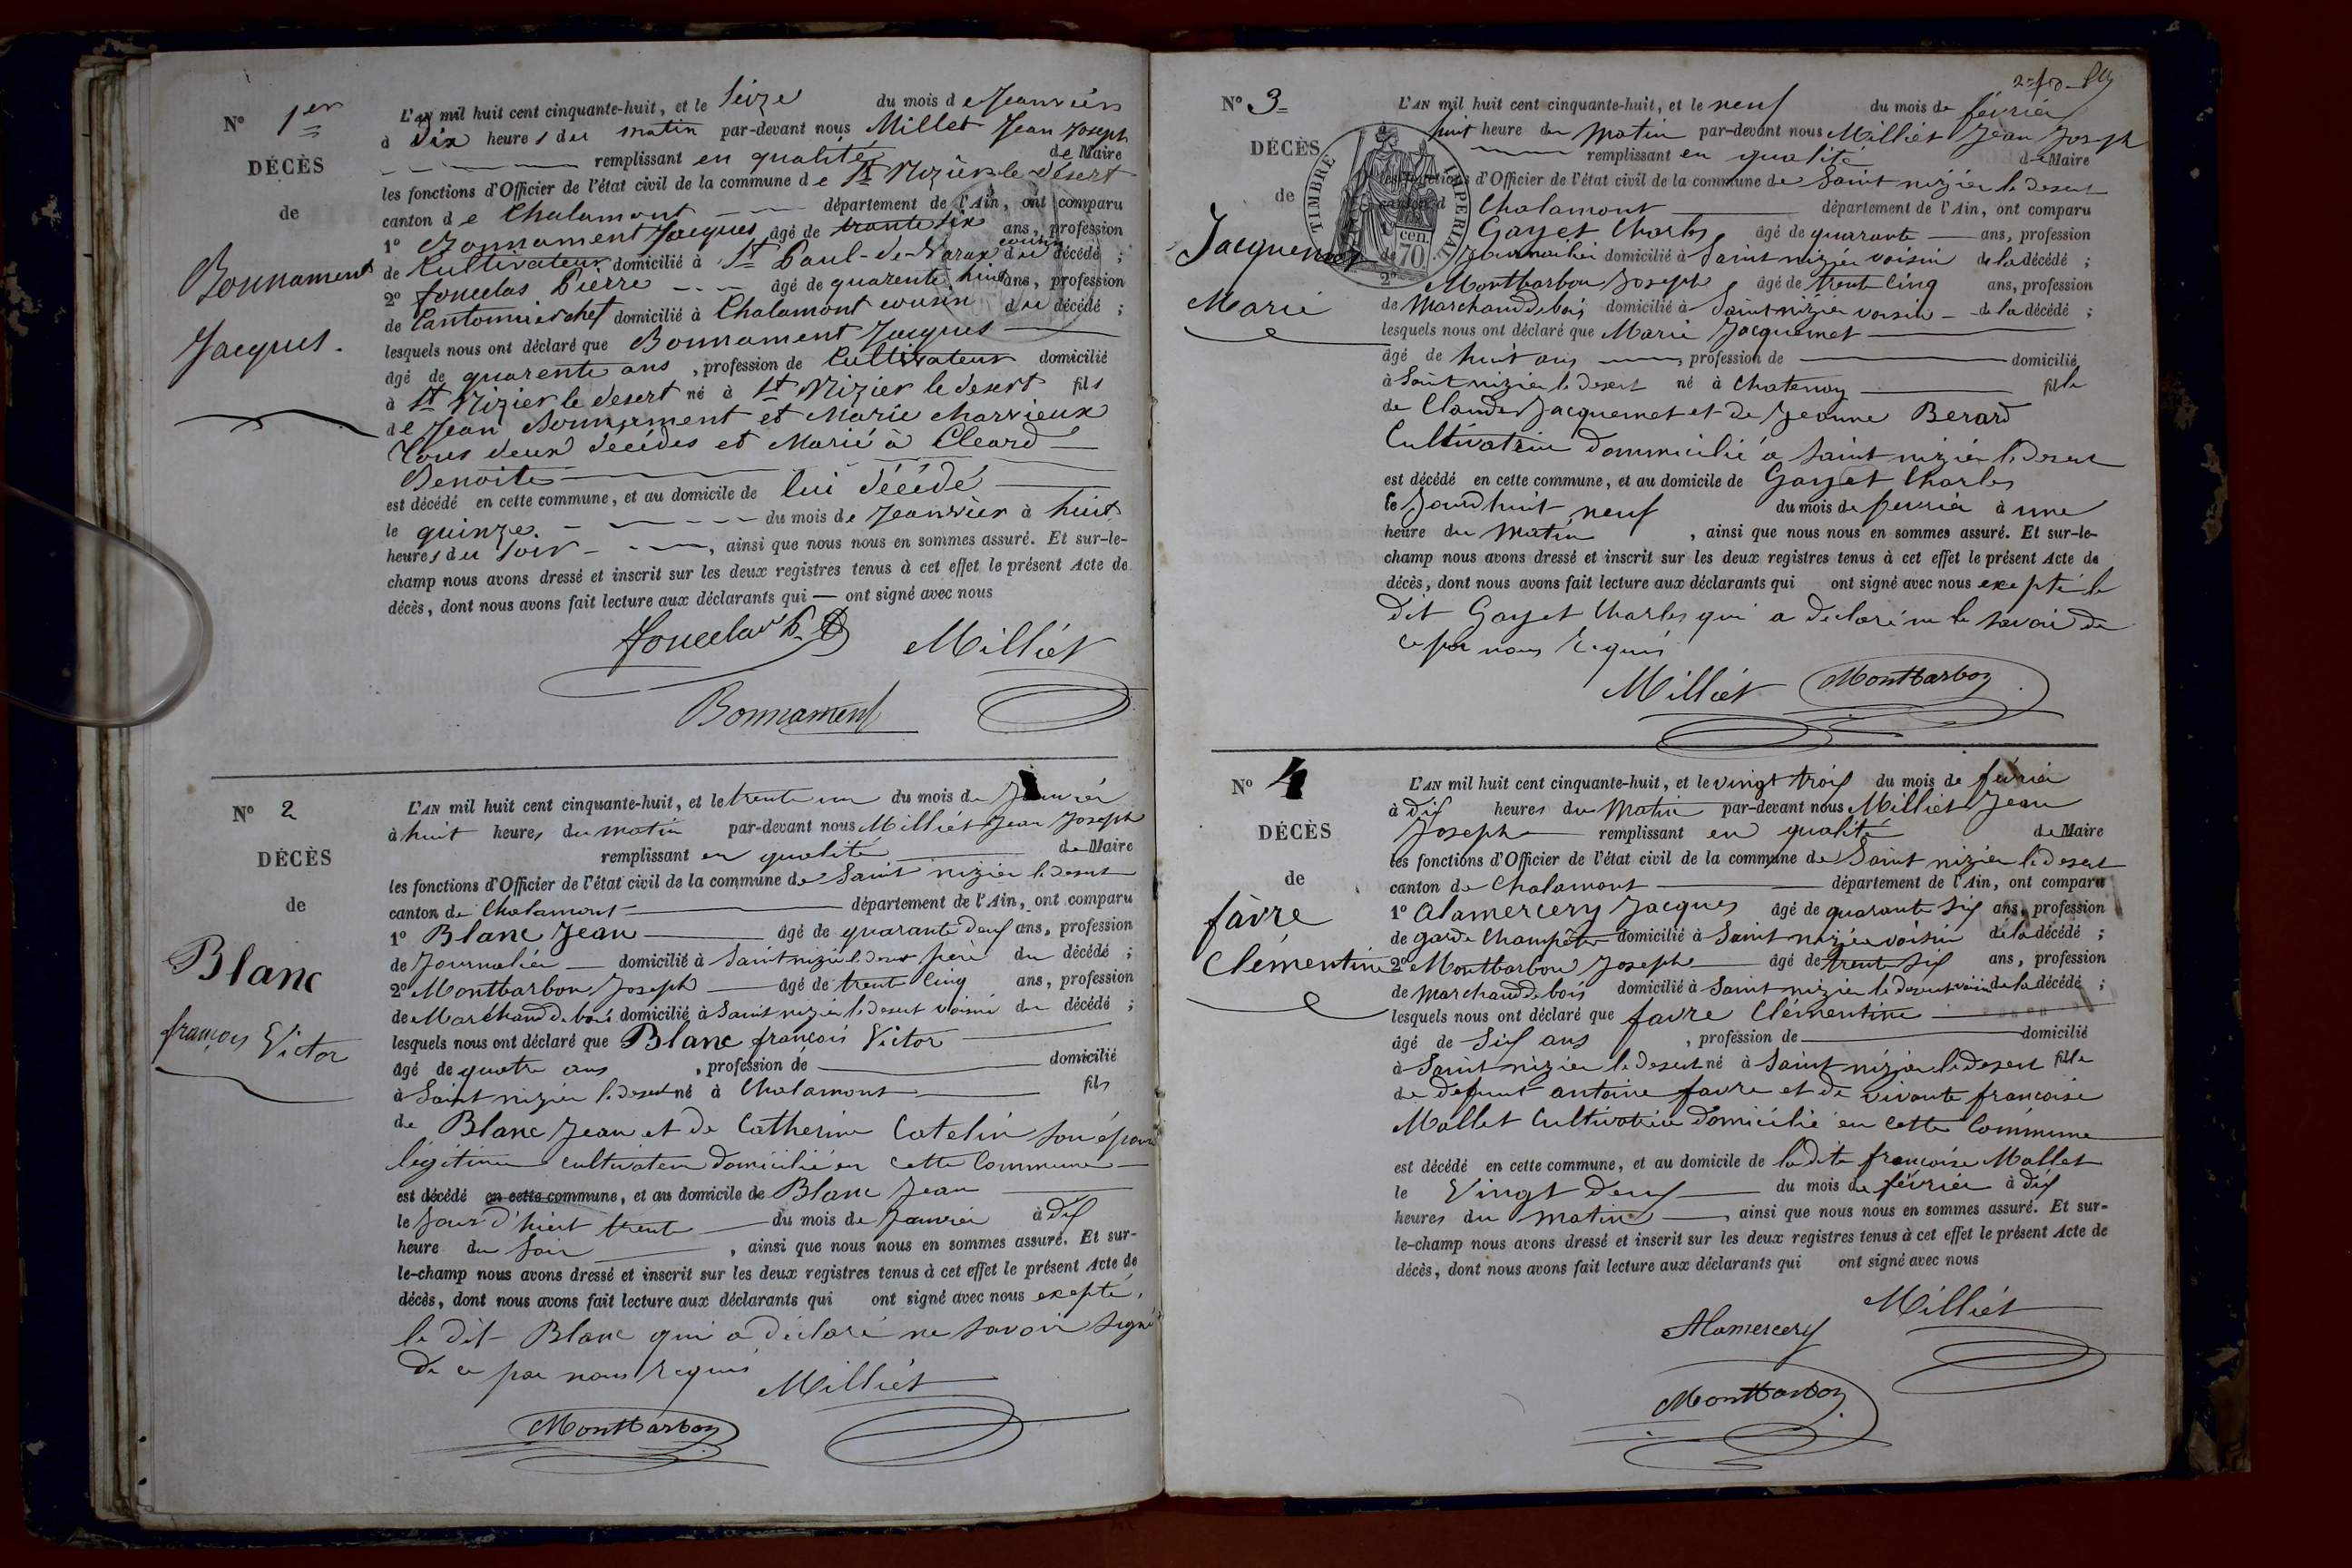 N° 1er
DÉCÈS
de
Bonnament
Jacques.
L'AN mil huit cent cinquante-huit, et le Seize du mois de Jeanvier
à dix heures du matin par-devant nous Milliet Jean Joseph
remplissant en qualité de Maire
les fonctions d'Officier de l'état civil de la commune de St Nizier le désert
canton de Chalamont département de l'Ain, ont comparu
1° Bonnament Jacques âgé de trante six ans, profession
de Cultivateur domicilié à St Paul-de-Varax cousin du décédé ;
2° Fouclas Pierre âgé de quarente huit ans, profession
de Cantonnier chef domicilié à Chalamont cousin du décédé ;
lesquels nous ont déclaré que Bonnament Jacques
âgé de quarente ans, profession de Cultivateur domicilié
à St Nizier le desert né à St Nizier le desert fils
de Jean Bonnament et Marie Charvieux
Tous deux décédés et Marié à Cleard
Benoite
est décédé en cette commune, et au domicile de lui décédé
le quinze. du mois de Jeanvier à huit
heures du soir, ainsi que nous nous en sommes assuré. Et sur-le-
champ nous avons dressé et inscrit sur les deux registres tenus à cet effet le présent Acte de
décès, dont nous avons fait lecture aux déclarants qui ont signé avec nous
Milliét
Bonnament
N° 2
DÉCÈS
de
Blanc
françois Victor
L'AN mil huit cent cinquante-huit, et le trente un du mois de Janvier
à huit heures du matin par-devant nous Milliét Jean Joseph
remplissant en qualité de Maire
les fonctions d'Officier de l'état civil de la commune de Saint nizier le desert
canton de Chalamont département de l'Ain, ont comparu
1° Blanc Jean âgé de quarante deux ans, profession
de Journalier domicilié à Saint nizier le desert père du décédé ;
2° Montbarbon Joseph âgé de trente Cinq ans, profession
de Marchand de bois domicilié à Saint nizier le desert voisin du décédé ;
lesquels nous ont déclaré que Blanc françois Victor
âgé de quatre ans, profession de domicilié
à Saint nizier le desert né à Chalamont fils
de Blanc Jean et de Catherine Catelin son épouse
légitime cultivateur domicilié en cette Commune
est décédé en cette commune, et au domicile de Blanc Jean
le Jour d'hiert trente du mois de Janvier à dix
heure du Soir, ainsi que nous nous en sommes assuré. Et sur-
le-champ nous avons dressé et inscrit sur les deux registres tenus à cet effet le présent Acte de
décès, dont nous avons fait lecture aux déclarants qui ont signé avec nous exepté,
le dit Blanc qui a déclaré ne savoir signé
de ce par nous requis
Milliét
Montbarbon
N° 3
DÉCÈS
de
Jacquemet
Marie
TIMBRE IMPERIAL
70 cen.
L'AN mil huit cent cinquante-huit, et le neuf du mois de février
huit heure du Matin par-devant nous Milliét Jean Joseph
remplissant en qualité de Maire
les fonctions d'Officier de l'état civil de la commune de Saint nizier le desert
canton d Chalamont département de l'Ain, ont comparu
Gayet Charles âgé de quarante ans, profession
de Journailier domicilié à Saint nizier voisin de la décédé ;
2° Montbarbon Joseph âgé de trente Cinq ans, profession
de Marchand de bois domicilié à Saint nizier voisin de la décédé ;
lesquels nous ont déclaré que Marie Jacquemet
âgé de huit ans, profession de domicilié
à Saint nizier le desert né à Chatenay fille
de Claude Jacquemet et de Jeanne Berard
Cultivateur dommicilié à Saint nizier le desert
est décédé en cette commune, et au domicile de Gayet Charles
le Jourd'huit neuf du mois de fevrier à une
heure du Matin, ainsi que nous nous en sommes assuré. Et sur-le-
champ nous avons dressé et inscrit sur les deux registres tenus à cet effet le présent Acte de
décès, dont nous avons fait lecture aux déclarants qui ont signé avec nous exepté le
dit Gayet Charles qui a déclaré ne le savoir de
ce par nous requis
Milliét Montbarbon
N° 4
DÉCÈS
de
fàvre
Clémentine
L'AN mil huit cent cinquante-huit, et le vingt trois du mois de février
à dix heures du Matin par-devant nous Milliét Jean
Joseph remplissant en qualité de Maire
les fonctions d'Officier de l'état civil de la commune de Saint nizier le desert
canton de Chalamont département de l'Ain, ont comparu
1° Alamercery Jacques âgé de quarante six ans, profession
de garde Champêtre domicilié à Saint nizier voisin de la décédé ;
2° Montbarbon Joseph âgé de trente six ans, profession
de Marchand de bois domicilié à Saint nizier le desert voisin de la décédé ;
lesquels nous ont déclaré que favre Clémentine
âgé de Six ans, profession de domicilié
à Saint nizier le desert né à Saint nizier le desert fille
de defunt antoine favre et de vivante francoise
Mallet Cultivatrice domicilié en cette Commune
est décédé en cette commune, et au domicile de la dite françoise Mallet
le Vingt deux du mois de février à dix
heures du matin, ainsi que nous nous en sommes assuré. Et sur-
le-champ nous avons dressé et inscrit sur les deux registres tenus à cet effet le présent Acte de
décès, dont nous avons fait lecture aux déclarants qui ont signé avec nous
Milliét
Alamercery
Montbarbon